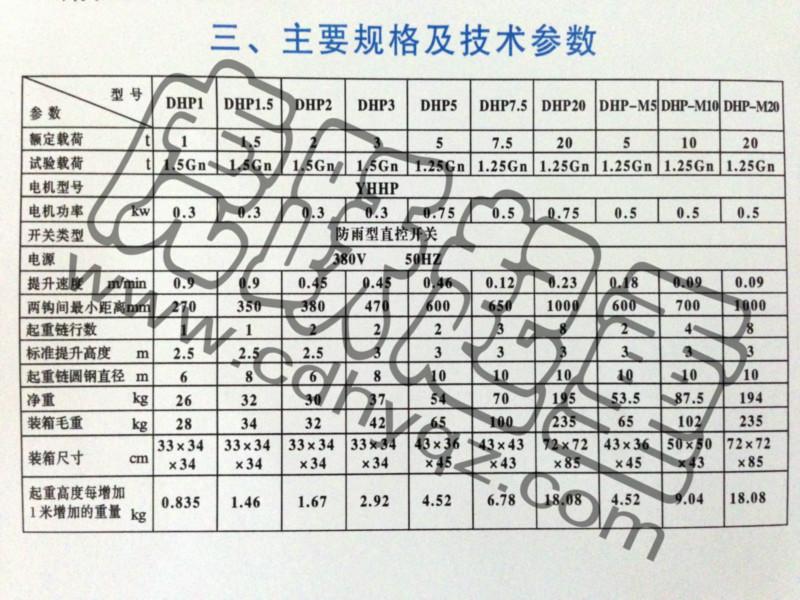 三、主要规格及技术参数
型号 DHP1 DHP1.5 DHP2 DHP3 DHP5 DHP7.5 DHP20 DHP-M5 DHP-M10 DHP-M20
参数
额定载荷 t 1 1.5 2 3 5 7.5 20 5 10 20
试验载荷 t 1.5Gn 1.5Gn 1.5Gn 1.5Gn 1.25Gn 1.25Gn 1.25Gn 1.25Gn 1.25Gn 1.25Gn
电机型号 YHHP
电机功率 kw 0.3 0.3 0.3 0.3 0.75 0.5 0.75 0.5 0.5 0.5
开关类型 防雨型直控开关
电源 380V 50HZ
提升速度 m/min 0.9 0.9 0.45 0.45 0.46 0.12 0.23 0.18 0.09 0.09
两钩间最小距离mm 270 350 380 470 600 650 1000 600 700 1000
起重链行数 1 1 2 2 2 3 8 2 4 8
标准提升高度 m 2.5 2.5 2.5 3 3 3 3 3 3 3
起重链圆钢直径 m 6 8 6 8 10 10 10 10 10 10
净重 kg 26 32 30 37 54 70 195 53.5 87.5 194
装箱毛重 kg 28 34 32 42 65 100 235 65 102 235
装箱尺寸 cm 33×34×34 33×34×34 33×34×34 33×34×34 43×36×45 43×43×43 72×72×85 43×36×45 50×50×43 72×72×85
起重高度每增加
1米增加的重量 kg 0.835 1.46 1.67 2.92 4.52 6.78 18.08 4.52 9.04 18.08
www.cdhyqz.com